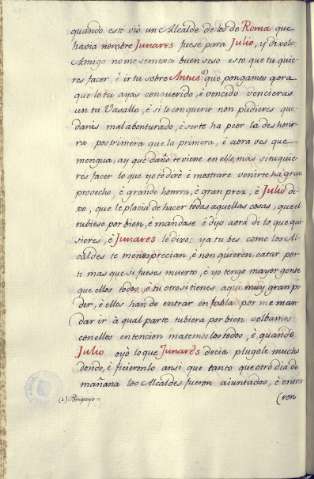 quando esto vió un Alcalde de los de Roma que
havia nombre Junares fuese para Julio, y dixole:
Amigo no me semeja buen seso esto que tu quie-
res facer, é ir tu sobre Annus, que pongamos agora
que lo tu ayas conquerido, é vencido vencieras
un tu Vasallo, é si lo conquerir non pudieres que-
darás malabenturado, é serte ha peor la deshonr-
ra postrimera que la primera, é aora ves que
mengua, ay que daño te viene en ello, mas si tu quie-
res facer lo que yo te diré é mostrare venirte ha gran
provecho, é grande honrra, é gran prez, é Julio di-
xo, que le placia de facer todas aquellas cosas, que el
tubiese por bien, é mandase é dijo aora di lo que qui-
sieres, é Junares le dixo: ya tu bes como los Al-
caldes te menosprecian, é non quieren catar por
ti mas que si fueses muerto, é yo tengo mayor gente
que ellos todos, é tu otrosi tienes aqui muy gran po-
der, é ellos han de entrar en fabla por me man-
dar ir à qual parte tubiera por bien volbamos
con ellos entencion matemoslos todos, é quando
Julio oyò lo que Junares decia plugole mucho
dende, é ficieronlo ansi, que tanto que otro dia de
mañana los Alcaldes fueron aiuntados, é entra
(ron